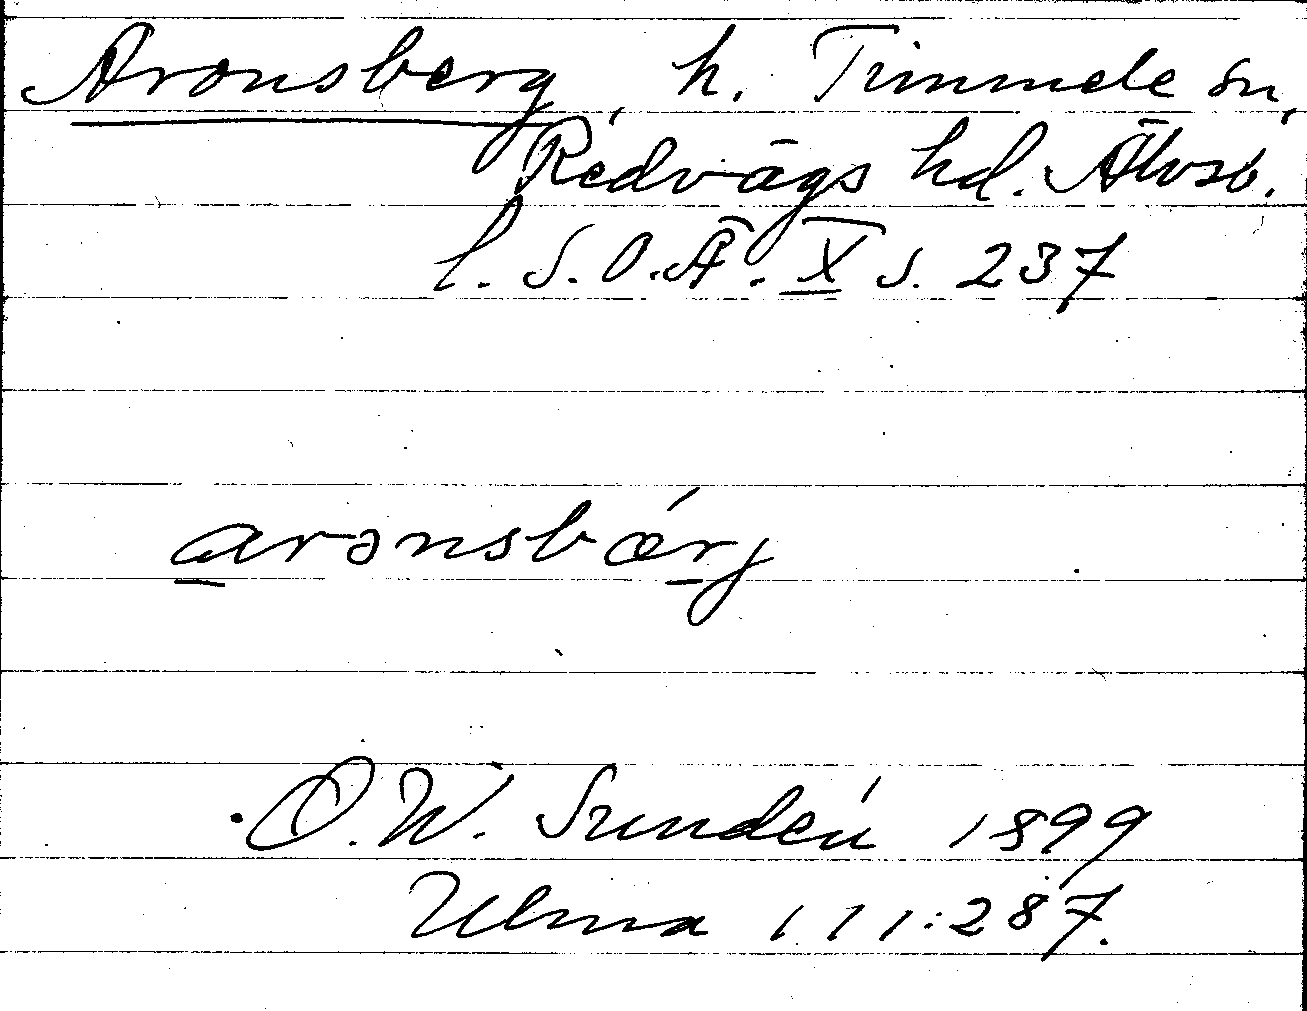 Aronsberg, h. Timmele sn,
Redvägs hd. Älvsb.
l. S.O.Ä. X s. 237
aronsbǽrj
D.W. Sundén 1899
Ulma 111:287.